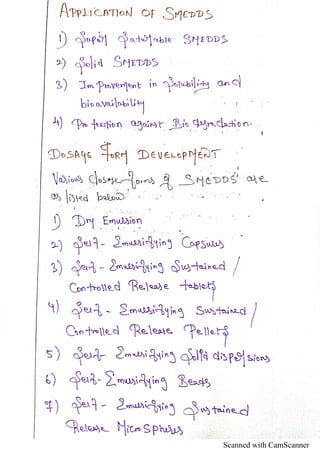 APPLICATION OF SMEDDS
1) Super Saturable SMEDDS
2) Solid SMEDDS
3) Improvement in Solubility and
bioavailability
4) Protection against Biodegradation.
DOSAGE FORM DEVELOPMENT
Various dosage forms of SMEDDS are
as listed below
1) Dry Emulsion
2) Self - Emulsifying Capsules
3) Self - Emulsifying Sustained /
Controlled Release tablets
4) Self - Emulsifying Sustained /
Controlled Release Pellets
5) Self - Emulsifying Solid dispersions
6) Self - Emulsifying Beads
7) Self - Emulsifying Sustained
Release Microspheres
Scanned with CamScanner